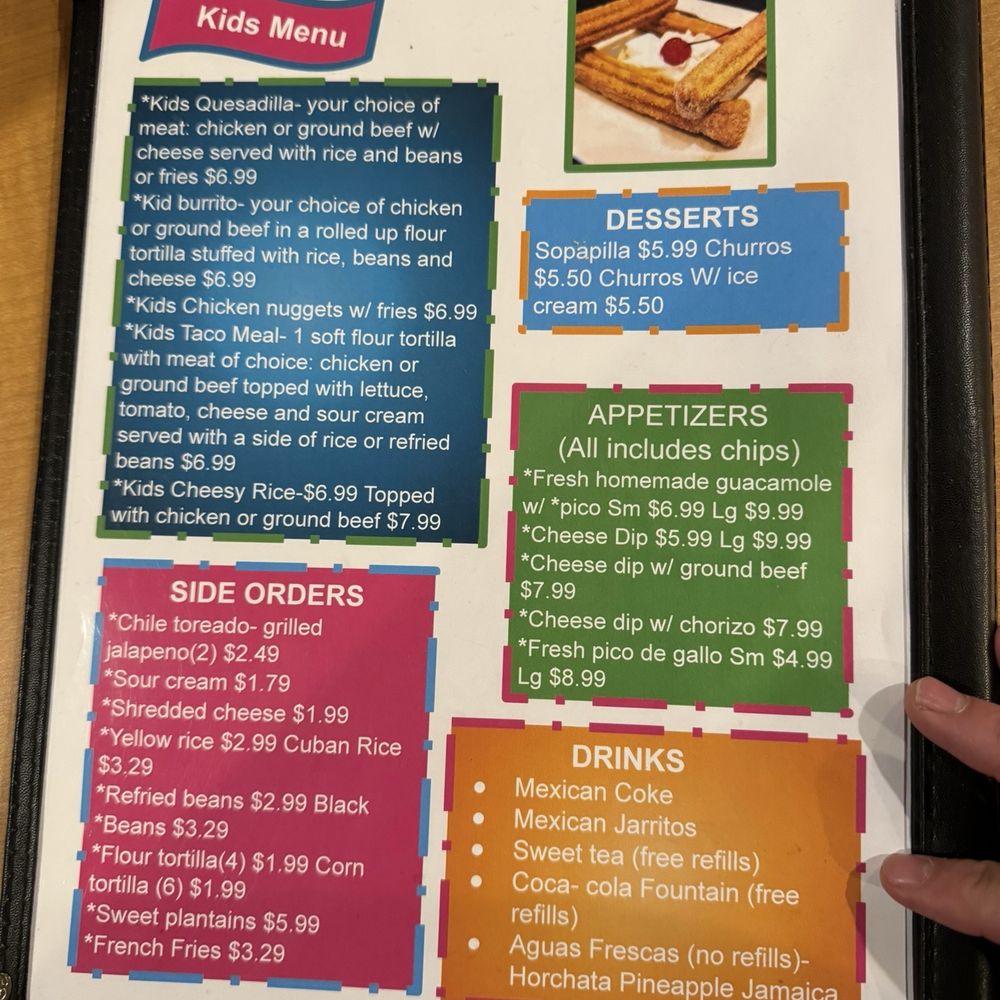 Kids Menu
*Kids Quesadilla- your choice of
meat: chicken or ground beef w/
cheese served with rice and beans
or fries $6.99
*Kid burrito- your choice of chicken
or ground beef in a rolled up flour
tortilla stuffed with rice, beans and
cheese $6.99
*Kids Chicken nuggets w/ fries $6.99
*Kids Taco Meal- 1 soft flour tortilla
with meat of choice: chicken or
ground beef topped with lettuce,
tomato, cheese and sour cream
served with a side of rice or refried
beans $6.99
*Kids Cheesy Rice-$6.99 Topped
with chicken or ground beef $7.99
SIDE ORDERS
*Chile toreado- grilled
jalapeno(2) $2.49
*Sour cream $1.79
*Shredded cheese $1.99
*Yellow rice $2.99 Cuban Rice
$3.29
*Refried beans $2.99 Black
*Beans $3.29
*Flour tortilla(4) $1.99 Corn
tortilla (6) $1.99
*Sweet plantains $5.99
*French Fries $3.29
DESSERTS
Sopapilla $5.99 Churros
$5.50 Churros W/ ice
cream $5.50
APPETIZERS
(All includes chips)
*Fresh homemade guacamole
w/ *pico Sm $6.99 Lg $9.99
*Cheese Dip $5.99 Lg $9.99
*Cheese dip w/ ground beef
$7.99
*Cheese dip w/ chorizo $7.99
*Fresh pico de gallo Sm $4.99
Lg $8.99
DRINKS
• Mexican Coke
• Mexican Jarritos
• Sweet tea (free refills)
• Coca- cola Fountain (free
refills)
• Aguas Frescas (no refills)-
Horchata Pineapple Jamaica